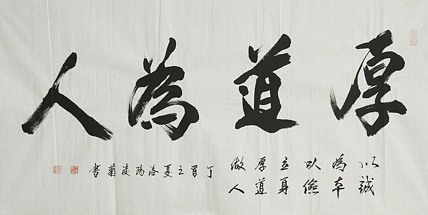 厚道為人
以誠
為本
以儉
立身
厚道
做人
丁酉之夏洛陽凌書